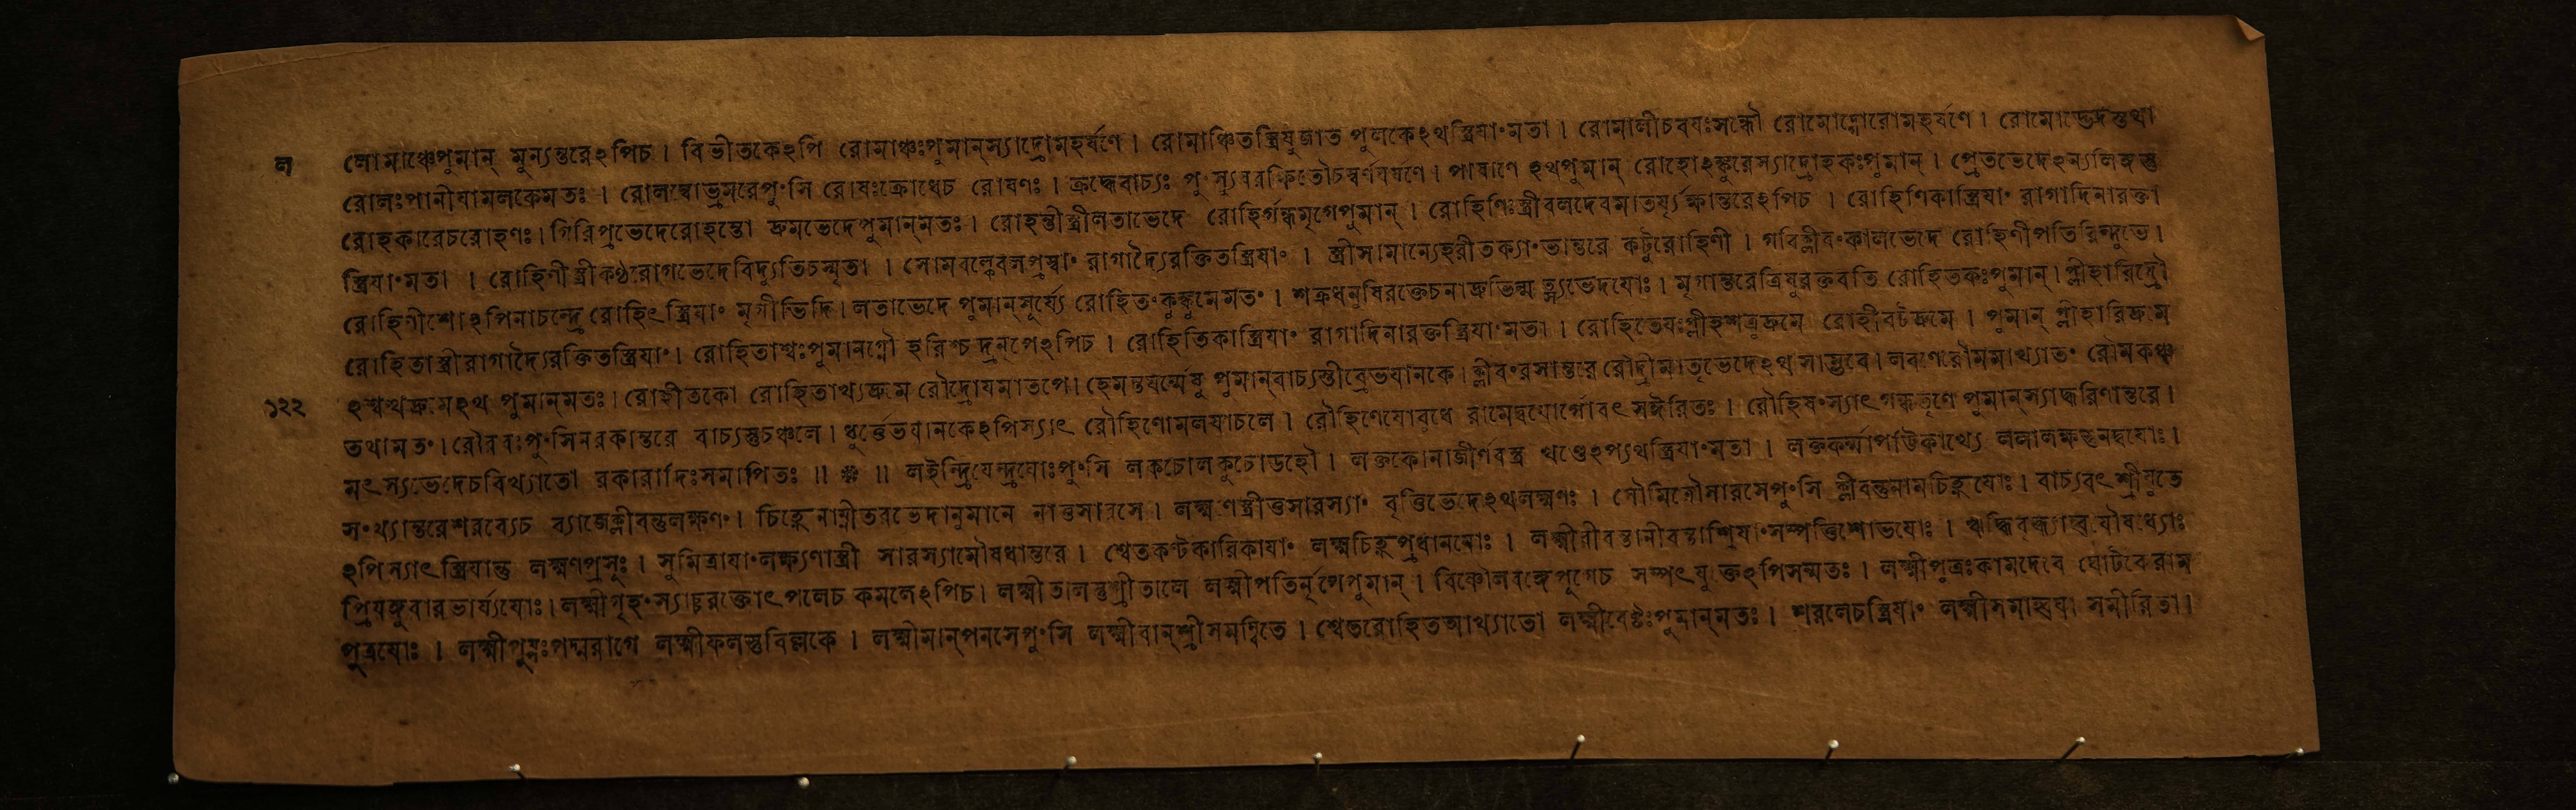 ল লোমাঞ্চেপুমান্ মুন্যন্তরেঽপিচ। বিভীতকেঽপি রোমাঞ্চঃপুমান্স্যাদ্রোমহর্ষণে। রোমাঞ্চিতস্ত্রিষুজাত পুলকেঽথস্ত্রিযাংমতা। রোমালীচবযঃসন্ধৌ রোমোদ্গোরোমহর্ষণে। রোমোদ্ভেদস্তথা
রোলঃপানীযামলকেমতঃ। রোলম্বোভ্রমরেপুংসি রোষঃক্রোধেচ রোষণঃ। ক্রদ্ধেবাচ্যঃ পাষাণে ঽথপুমান্ রোহোঽঙ্কুরেস্যাদ্রোহকঃপুমান্। প্রেতভেদেঽন্যলিঙ্গস্তু
রোহকারেচরোহণঃ। গিরিপ্রভেদেরোহন্তো দ্রুমভেদেপুমান্মতঃ। রোহন্তীস্ত্রীলতাভেদে রোহির্গন্ধমৃগেপুমান্। রোহিণিঃস্ত্রীবলদেবমাতর্য্যৃক্ষান্তরেঽপিচ। রোহিণিকাস্ত্রিযাং রাগাদিনারক্তা
স্ত্রিযাংমতা। রোহিণীস্ত্রীকণ্ঠরোগভেদেবিদ্যুতিচস্মৃতা। সোমবল্কে রাগাদ্যৈরক্তিতস্ত্রিযাং। স্ত্রীসামান্যেহরীতক্যাংভান্তরে কটুরোহিণী। গবিক্লীবংকালভেদে রোহিণীপতিরিন্দুভে।
রোহিণীশোঽপিনাচন্দ্রে রোহিৎ স্ত্রিযাং মৃগীভিদি। লতাভেদে পুমান্সূর্য্যে রোহিতংকুঙ্কুমেমতং। শক্রধনুষিরক্তেচনাদ্রুভিন্ম ৎস্যভেদযোঃ। মৃগান্তরেত্রিষুরক্তবতি রোহিতকঃপুমান্। প্লীহারিদ্রৌ
রোহিতাস্ত্রীরাগাদ্যৈরক্তিতস্ত্রিযাং। রোহিতাশ্বঃপুমানগ্নৌ হরিশ্চ দ্রনৃপেঽপিচ। রোহিতিকাস্ত্রিযাং রাগাদিনারক্তস্ত্রিযাংমতা। রোহিতেযঃপ্লীহশত্রুদ্রুমে রোহীবটদ্রুমে। পুমান্ প্লীহারিদ্রুমে
১২২ ঽশ্বত্থদ্রুমেঽথ পুমান্মতঃ। রোহীতকো রোহিতাখ্যদ্রুমে রৌদ্রোযমাতপে। হেমন্তঘর্ম্মেষু পুমান্বাচ্যস্তীব্রেভযানকে। ক্লীবংরসান্তরে রৌদ্রীমাতৃভেদেঽথ সাম্ভবে। লবণেরৌমমাখ্যাতং রৌমকঞ্চ
তথামতং। রৌরবঃপুংসিনরকান্তরে বাচ্যস্তুচঞ্চলে। ধূর্ত্তেভযানকেঽপিস্যাৎ রৌহিণোমলযাচলে। রৌহিণেযোবুধে সঈরিতঃ। রৌহিষংস্যাৎ গন্ধতৃণে পুমান্স্যাদ্ধরিণান্তরে।
মৎস্যভেদেচবিখ্যাতো রকারাদিঃসমাপিতঃ॥ ❋ ॥ লইন্দ্রিযেন্দ্রযোঃপুংসি লকচোলকুচোডহৌ। লক্তকোনাজীর্ণবস্ত্র খণ্ডেঽপ্যথস্ত্রিযাংমতা। লক্তকর্ম্মাপট্টিকাখ্যে
সংখ্যান্তরেশরব্যেচ ব্যাজেক্লীবন্তুলক্ষণং। চিহ্নেনাম্নীতরভেদানুমানে নাতুসারসে। লক্ষ্মণস্ত্রীতুসারস্যাং বৃত্তিভেদেঽথলক্ষ্মণঃ। সৌমিত্রৌসারসেপুংসি ক্লীবন্তুনামচিহ্নযোঃ। বাচ্যবৎ শ্রীযুতে
ঽপিস্যাৎস্ত্রিযান্তু লক্ষ্মণপ্রসূঃ। সুমিত্রাযাংলক্ষ্যণাস্ত্রী সারস্যামৌষধান্তরে। শ্বেতকণ্টকারিকাযাং লক্ষ্মচিহ্নপ্রধানযোঃ। সম্পত্তিশোভযোঃ।
প্রিযঙ্গুবারভার্য্যযোঃ। লক্ষ্মীগৃহংস্যাচ্চরক্তোৎপলেচ কমলেঽপিচ। লক্ষ্মীতালস্তুশ্রীতালে লক্ষ্মীপতির্নৃপেপুমান্। সম্মতঃ। লক্ষ্মীপুত্রঃকামদেবে ঘোটকেরাম
পুত্রযোঃ। লক্ষ্মীপুত্রঃপদ্মরাগে লক্ষ্মীফলস্তুবিল্বকে। লক্ষ্মীমান্পনসেপুংসি লক্ষ্মীবান্শ্রীসমন্বিতে। শ্বেতরোহিতআখ্যাতো লক্ষ্মীবেষ্টঃপুমান্মতঃ। শরলেচস্ত্রিযাং সমীরিতা।